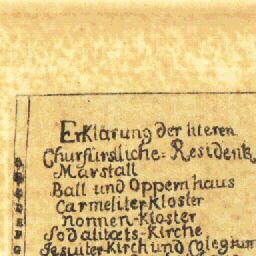 Erklärung der literen
Churfürstliche= Residentz
Marstall
Ball und Oppern haus
Carmeliter Kloster
nonnen-Kloster
Sodalitæts-Kirche
Jesuiter-Kirch und Colegium